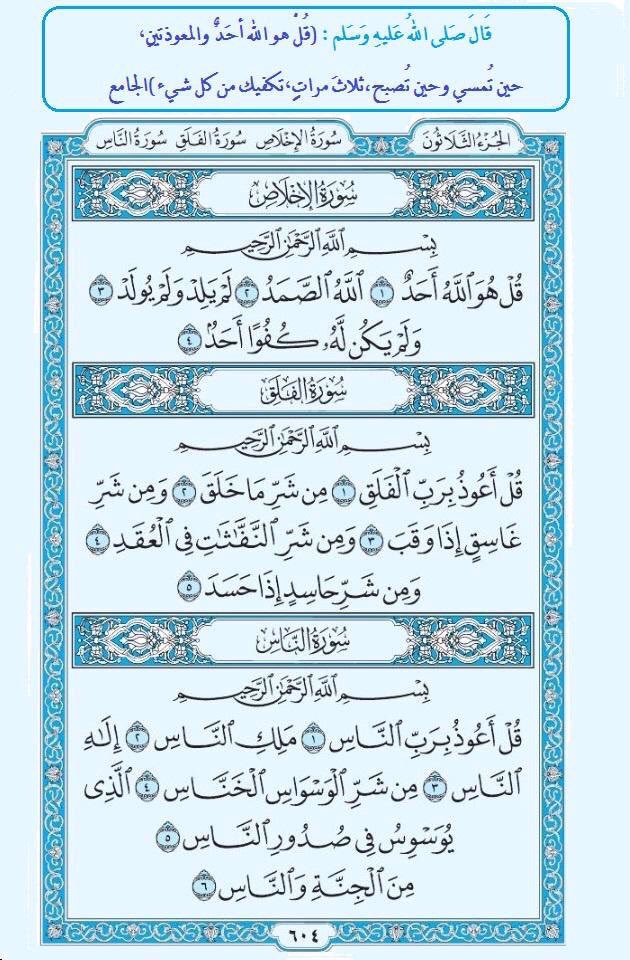 قَالَ صَلى اللهُ عَليهِ وَسَلم : (قُلْ هو الله أحَدٌ والمعوذتينِ،
حين تُمسي وحين تُصبح،ثلاثَ مراتٍ،تكفيك من كل شيء)الجامع
الجُزءُ الثَّلَاثُونَ سُورَةُ الإِخْلَاصِ سُورَةُ الفَلَقِ سُورَةُ النَّاسِ
سُورَةُ الإِخْلَاصِ
بِسْمِ ٱللَّهِ ٱلرَّحْمَٰنِ ٱلرَّحِيمِ
قُلْ هُوَ ٱللَّهُ أَحَدٌ ١ ٱللَّهُ ٱلصَّمَدُ ٢ لَمْ يَلِدْ وَلَمْ يُولَدْ ٣
وَلَمْ يَكُن لَّهُۥ كُفُوًا أَحَدٌۢ ٤
سُورَةُ الفَلَقِ
بِسْمِ ٱللَّهِ ٱلرَّحْمَٰنِ ٱلرَّحِيمِ
قُلْ أَعُوذُ بِرَبِّ ٱلْفَلَقِ ١ مِن شَرِّ مَا خَلَقَ ٢ وَمِن شَرِّ
غَاسِقٍ إِذَا وَقَبَ ٣ وَمِن شَرِّ ٱلنَّفَّٰثَٰتِ فِى ٱلْعُقَدِ ٤
وَمِن شَرِّ حَاسِدٍ إِذَا حَسَدَ ٥
سُورَةُ النَّاسِ
بِسْمِ ٱللَّهِ ٱلرَّحْمَٰنِ ٱلرَّحِيمِ
قُلْ أَعُوذُ بِرَبِّ ٱلنَّاسِ ١ مَلِكِ ٱلنَّاسِ ٢ إِلَٰهِ
ٱلنَّاسِ ٣ مِن شَرِّ ٱلْوَسْوَاسِ ٱلْخَنَّاسِ ٤ ٱلَّذِى
يُوَسْوِسُ فِى صُدُورِ ٱلنَّاسِ ٥
مِنَ ٱلْجِنَّةِ وَٱلنَّاسِ ٦
٦٠٤